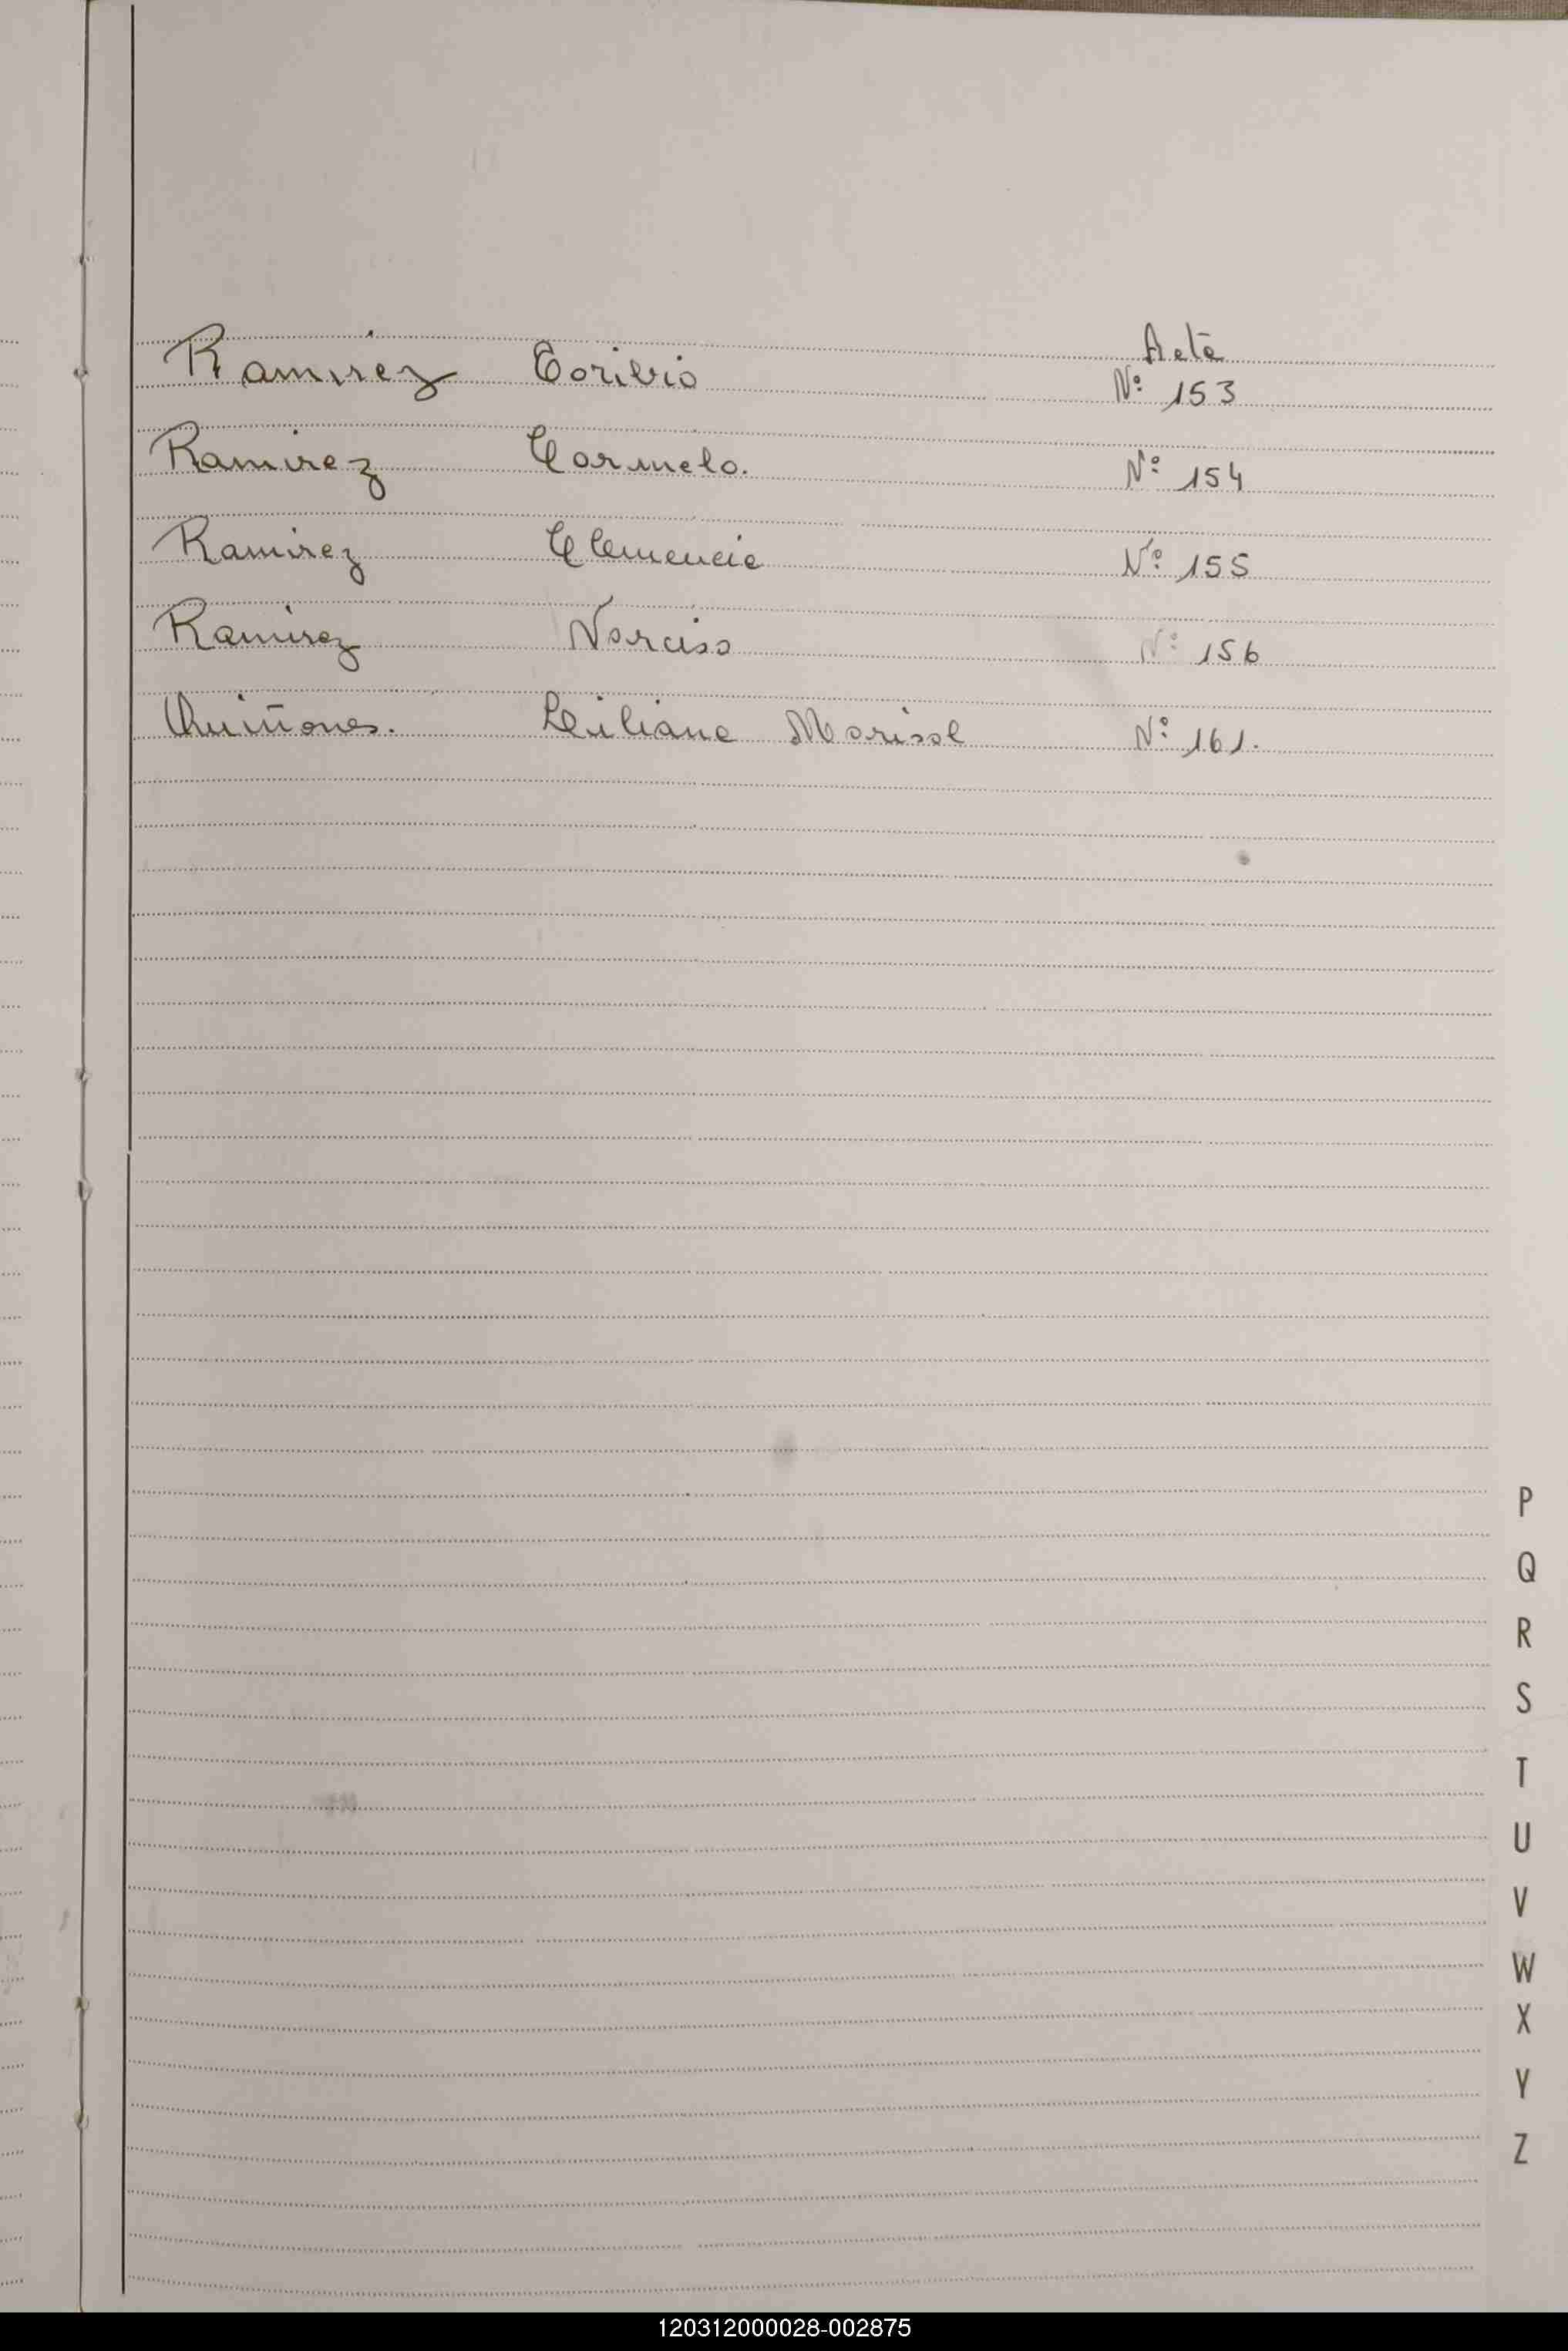 Acta
Ramirez Toribio Nº 153
Ramirez Carmelo. Nº 154
Ramirez Clemencia Nº 155
Ramirez Narciso Nº 156
Quiñones. Liliana Marisol Nº 161.
P
Q
R
S
T
U
V
W
X
Y
Z
120312000028-002875